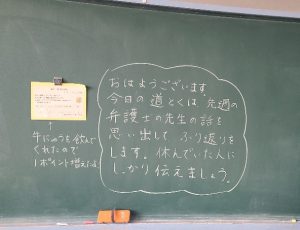 おはようございます。
今日の道とくは、先週の
弁護士の先生の話を
思い出して、ふり返りを
します。休んでいた人に
しっかり伝えましょう。
↑
牛にゅうを飲んで
くれたので
1ポイント増えたよ